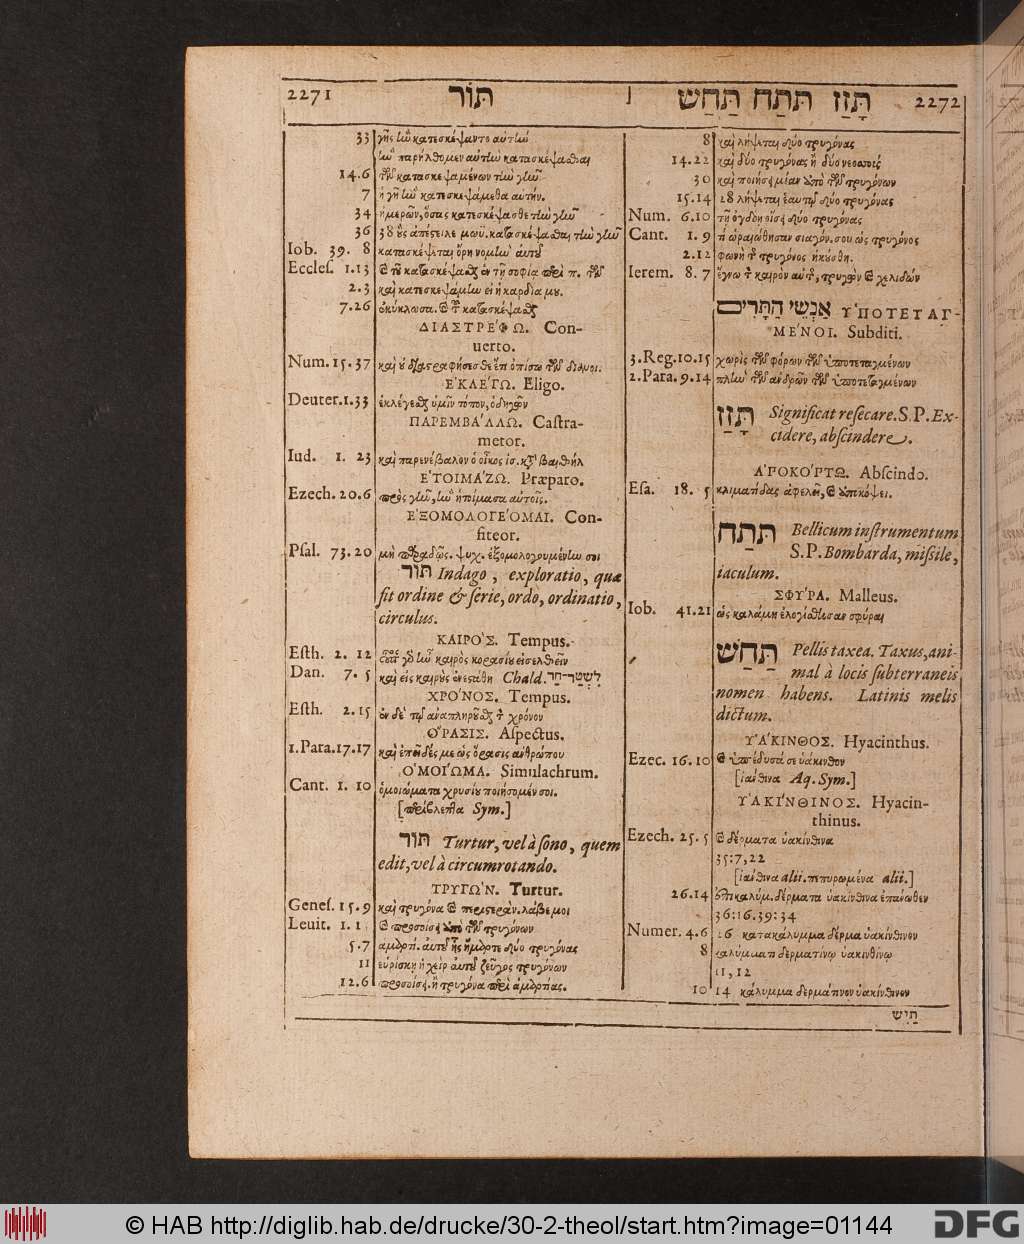 2271 תּוֹר
תָּזַז תּתַח תַּחַשׁ 2272
33 γῆς ἣν κατεσκέψαντο αὐτήν
ἣν παρήλθομεν αὐτὴν κατασκέψασθαι
14.6 τῶν κατασκεψαμένων τὴν γῆν
7 ἡ γῆ ἣν κατεσκεψάμεθα αὐτήν.
34 ἡμερῶν, ὅσας κατεσκέψασθε τὴν γῆν
36 38 οὓς ἀπέστειλε μωϋ. κατασκέψασθαι τὴν γῆν
Iob. 39. 8 κατασκέψεται ὄρη νομὴν αὐτοῦ
Eccles. 1.13 καὶ τοῦ κατασκέψασθαι ἐν τῇ σοφίᾳ περὶ π. τῶν
2.3 καὶ κατεσκεψάμην εἰ ἡ καρδία μου.
7.26 ἐκύκλωσα. καὶ τοῦ κατασκέψασθαι
ΔΙΑΣΤΡΕΦΩ. Con-
uerto.
Num. 15.37 καὶ οὐ διαστραφήσεσθε ἔτι ὀπίσω τῶν διανοι.
ἘΚΛΕΓΩ. Eligo.
Deuter. 1.33 ἐκλέγεσθαι ὑμῖν τόπον, ὁδηγῶν
ΠΑΡΕΜΒΑΛΛΩ. Castra-
metor.
Iud. 1. 23 καὶ παρενέβαλον ὁ οἶκος ἰσ. κατὰ βαιθήλ
ἙΤΟΙΜΑΖΩ. Præparo.
Ezech. 20.6 πρὸς γῆν, ἣν ἡτοίμασα αὐτοῖς.
ἘΞΟΜΟΛΟΓΕΟΜΑΙ. Con-
fiteor.
Psal. 73.20 μὴ παραδῷς. ψυχ. ἐξομολογουμένην σοι
תּוֹר Indago, exploratio, quæ
sit ordine & serie, ordo, ordinatio,
circulus.
ΚΑΙΡΟΣ. Tempus.
Esth. 2. 12 οὗτος γὰρ ἦν καιρὸς κορασίου εἰσελθεῖν
Dan. 7. 5 καὶ εἰς καιροὺς ἀνεστάθη Chald. לִשְׂטַר־חַד
ΧΡΟΝΟΣ. Tempus.
Esth. 2.15 ἐν δὲ τῷ ἀναπληροῦσθαι τὸν χρόνον
ὍΡΑΣΙΣ. Aspectus.
1.Para. 17.17 καὶ ἐπεῖδές με ὡς ὅρασις ἀνθρώπου
ὉΜΟΙΩΜΑ. Simulachrum.
Cant. 1. 10 ὁμοιώματα χρυσίου ποιήσομέν σοι.
[περίβλεπτα Sym.]
תּוֹר Turtur, vel à sono, quem
edit, vel à circumrotando.
ΤΡΥΓΩΝ. Turtur.
Genes. 15.9 καὶ τρυγόνα καὶ περιστεράν. λάβε μοι
Leuit. 1. 1 καὶ προσοίσει ἀπὸ τῶν τρυγόνων
5.7 αμαρτί. αὐτοῦ ἧς ἥμαρτε δύο τρυγόνας
11 εὑρίσκῃ ἡ χεὶρ αὐτοῦ ζεῦγος τρυγόνων
12.6 προσοίσει. ἢ τρυγόνα περὶ ἁμαρτίας.
8 καὶ λήψεται δύο τρυγόνας
14.22 καὶ δύο τρυγόνας ἢ δύο νεοσσούς
30 καὶ ποιήσει μίαν ἀπὸ τῶν τρυγόνων
15.14 28 λήψεται ἑαυτῷ δύο τρυγόνας
Num. 6.10 τῇ ὀγδόῃ οἴσει δύο τρυγόνας
Cant. 1. 9 τί ὡραιώθησαν σιαγόν. σου ὡς τρυγόνος
2.12 φωνὴ τῆς τρυγόνος ἠκούσθη.
Ierem. 8. 7 ἔγνω τὸν καιρὸν αὐτῆς, τρυγὼν καὶ χελιδών
אַנְשֵׁי הַתָּרִים ὙΠΟΤΕΤΑΓ-
ΜΕΝΟΙ. Subditi.
3.Reg. 10.15 χωρὶς τῶν φόρων τῶν ὑποτεταγμένων
2.Para. 9.14 πλὴν τῶν ἀνδρῶν τῶν ὑποτεταγμένων
תָּזַז Significat resecare. S.P. Ex-
cidere, abscindere.
ἈΠΟΚΟΠΤΩ. Abscindo.
Esa. 18. 5 κληματίδας ἀφελεῖ, καὶ ἀποκόψει.
תּתַח Bellicum instrumentum
S.P. Bombarda, missile,
iaculum.
ΣΦΥΡΑ. Malleus.
Iob. 41.21 ὡς καλάμη ἐλογίσθησαν σφύραι
תַּחַשׁ Pellis taxea. Taxus, ani-
mal à locis subterraneis
nomen habens. Latinis melis
dictum.
ὙΑΚΙΝΘΟΣ. Hyacinthus.
Ezec. 16.10 καὶ ὑπέδυσά σε ὑάκινθον
[ἰάνθινα Aq. Sym.]
ὙΑΚΙΝΘΙΝΟΣ. Hyacin-
thinus.
Ezech. 25. 5 καὶ δέρματα ὑακίνθινα
35:7, 22
[ἰάνθινα alii. πεπυρωμένα alii.]
26.14 ἐπικαλύμ. δέρματα ὑακίνθινα ἐπάνωθεν
36:16. 39:34
Numer. 4.6 26 κατακάλυμμα δέρμα ὑακίνθινον
8 καλύμματι δερματίνῳ ὑακινθίνῳ
11, 12
10 14 κάλυμμα δερμάτινον ὑακίνθινον
תַּיִשׁ
© HAB http://diglib.hab.de/drucke/30-2-theol/start.htm?image=01144
DFG